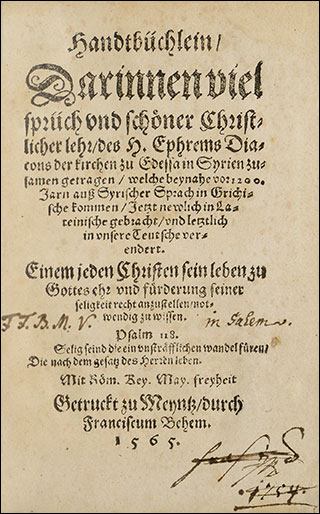 Handtbüchlein/
Darinnen viel
sprüch vnd schöner Christ-
licher lehr/des H. Ephrems Dia-
cons der kirchen zu Edessa in Syrien zu-
samen getragen/welche beynahe vor 1200.
Jarn auß Syrischer Sprach in Grichi-
sche kommen/Jetzt newlich in La-
teinische gebracht/vnd letztlich
in vnsere Teutsche ver-
endert.
Einem jeden Christen sein leben zu
Gottes ehr vnd fürderung seiner
seligkeit recht anzustellen/not-
wendig zu wissen.
T.T.B.M.V. in Salem
Psalm 118.
Selig seind die ein vnsträfflichen wandel füren/
Die nach dem gesatz des Herren leben.
Mit Röm. Key. May. freyheit
Getruckt zu Meyntz/durch
Franciscum Behem.
1565.
1754.